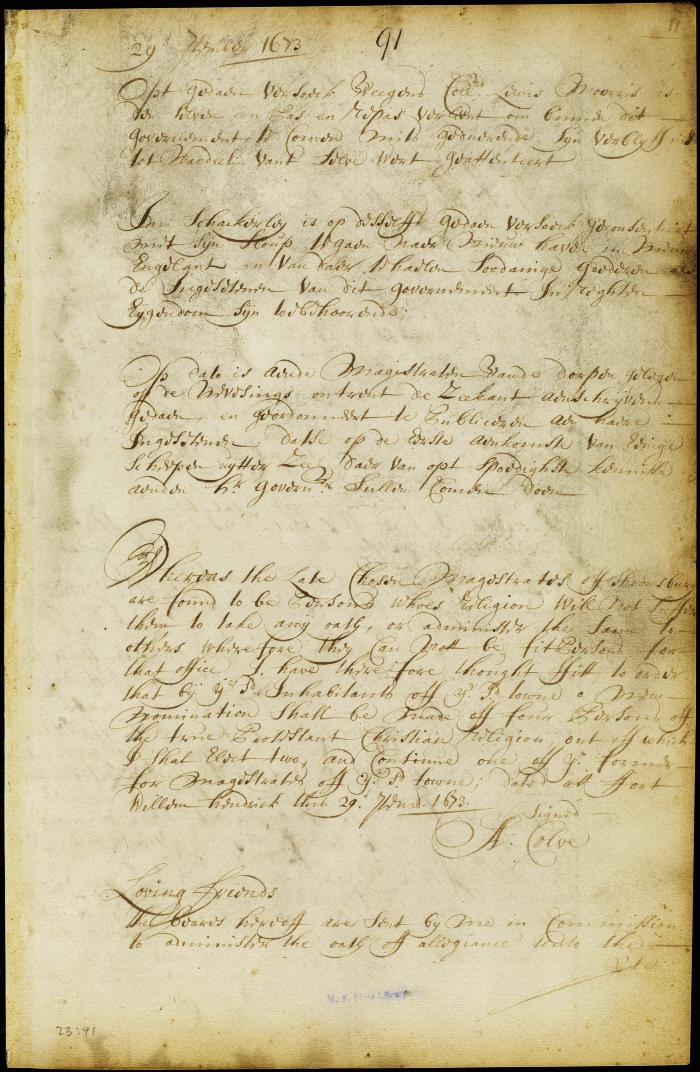 91
29 7tember 1673
Opt gedaen versoeck Weegens Coll. Lewis Morris is
den selven een Pas en Repas verleent om binnen dit
governement te Comen mits geduerende syn verblyff niet
tot Naedeel vant selve wert geattenteert
Jan Schackerley is op desselffs gedaen versoeck geconsenteert
met syn Sloup te gaen naer Nieuw haven in Nieuw
Engelant en van daer te haelen soodanige goederen als
de Ingesetenen van dit governement In Reghten
Eygendom syn toebehoorende;
Op dato is aende Magistraten vande dorpen gelegen
op de Nevesings ontrent de Zeekant aenschryvens
gedaen, en geordonneert te Publiceren aen haere
Ingesetenen, datse op de eerste aenkomste van Eenige
Scheepen uytter Zee, daer van opt Spoedighste kennisse
aenden hr. Governr. Sullen Comen doen
Whereas the Late Chosen Magistrates off Shrewsbury
are found to be Persons whoes Religion Will Not Suffer
them to take any oath, or administer the Same to
others wherefore they Can Nott be fit Persons for
that office, I have therefore thought fitt to order
that by ye. sd. Inhabitants off ye. sd. towne a New
Nomination shall be made off four Persons off
the true Protestant Christian Religion, out off which
I shal Elect two, and Continue one off ye. former
for Magistrates off ye. sd. towne; dated at ffort
Willem hendrick this 29. 7temb. 1673.
Signed
A: Colve
Loving friends
the bearers hereoff are sent by Me in Commission
to administer the oath off allegiance unto the
23:91